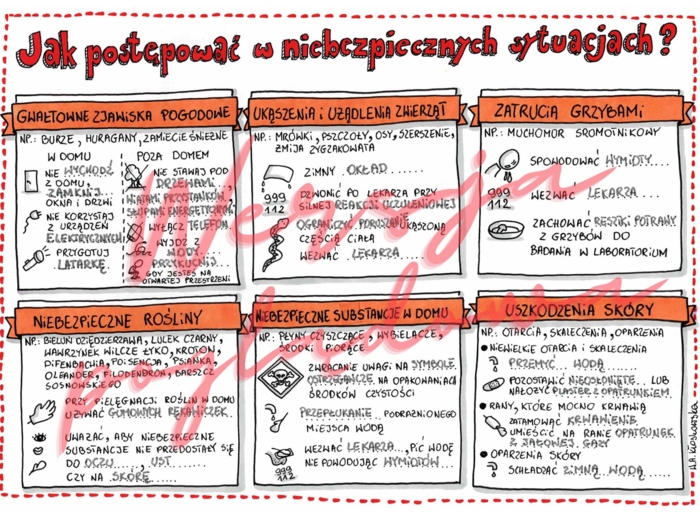 Jak postępować w niebezpiecznych sytuacjach?
GWAŁTOWNE ZJAWISKA POGODOWE
NP.: BURZE, HURAGANY, ZAMIECIE ŚNIEŻNE
W DOMU
NIE WYCHODŹ
Z DOMU,
ZAMKNIJ
OKNA I DRZWI
NIE KORZYSTAJ
Z URZĄDZEŃ
ELEKTRYCZNYCH
PRZYGOTUJ
LATARKĘ
POZA DOMEM
NIE STAWAJ POD
DRZEWAMI,
WIATAMI PRZYSTANKÓW,
SŁUPAMI ENERGETYCZNYMI
WYŁĄCZ TELEFON
WYJDŹ Z
WODY
PRZYKUCNIJ
GDY JESTEŚ NA
OTWARTEJ PRZESTRZENI
UKĄSZENIA I UŻĄDLENIA ZWIERZĄT
NP.: MRÓWKI, PSZCZOŁY, OSY, SZERSZENIE,
ŻMIJA ZYGZAKOWATA
ZIMNY OKŁAD.......
999
112
DZWONIĆ PO LEKARZA PRZY
SILNEJ REAKCJI UCZULENIOWEJ
OGRANICZYĆ PORUSZANIE UKĄSZONĄ
CZĘŚCIĄ CIAŁA
WEZWAĆ LEKARZA....
ZATRUCIA GRZYBAMI
NP.: MUCHOMOR SROMOTNIKOWY
SPOWODOWAĆ WYMIOTY....
999
112
WEZWAĆ LEKARZA....
ZACHOWAĆ RESZTKI POTRAWY
Z GRZYBÓW DO
BADANIA W LABORATORIUM
NIEBEZPIECZNE ROŚLINY
NP.: BIELUŃ DZIĘDZIERZAWA, LULEK CZARNY,
WAWRZYNEK WILCZE ŁYKO, KROTON,
DIFENBACHIA, POISENCJA, PSIANKA,
OLEANDER, FILODENDRON, BARSZCZ
SOSNOWSKIEGO
PRZY PIELĘGNACJI ROŚLIN W DOMU
UŻYWAĆ GUMOWYCH RĘKAWICZEK
UWAŻAĆ, ABY NIEBEZPIECZNE
SUBSTANCJE NIE PRZEDOSTAŁY SIĘ
DO OCZU....., UST.......
CZY NA SKÓRĘ......
NIEBEZPIECZNE SUBSTANCJE W DOMU
NP.: PŁYNY CZYSZCZĄCE, WYBIELACZE,
ŚRODKI PIORĄCE
ZWRACANIE UWAGI NA SYMBOLE
OSTRZEGAWCZE NA OPAKOWANIACH
ŚRODKÓW CZYSTOŚCI
PRZEPŁUKANIE PODRAŻNIONEGO
MIEJSCA WODĄ
WEZWAĆ LEKARZA..., PIĆ WODĘ
NIE POWODUJĄC WYMIOTÓW...
999
112
USZKODZENIA SKÓRY
NP.: OTARCIA, SKALECZENIA, OPARZENIA
• NIEWIELKIE OTARCIA I SKALECZENIA
PRZEMYĆ WODĄ.....
POZOSTAWIĆ NIEOSŁONIĘTE... LUB
NAŁOŻYĆ PLASTER Z OPATRUNKIEM
• RANY, KTÓRE MOCNO KRWAWIĄ
ZATAMOWAĆ KRWAWIENIE
UMIEŚCIĆ NA RANIE OPATRUNEK
Z JAŁOWEJ GAZY
• OPARZENIA SKÓRY
SCHŁADZAĆ ZIMNĄ WODĄ.....
Wersja
poglądowa